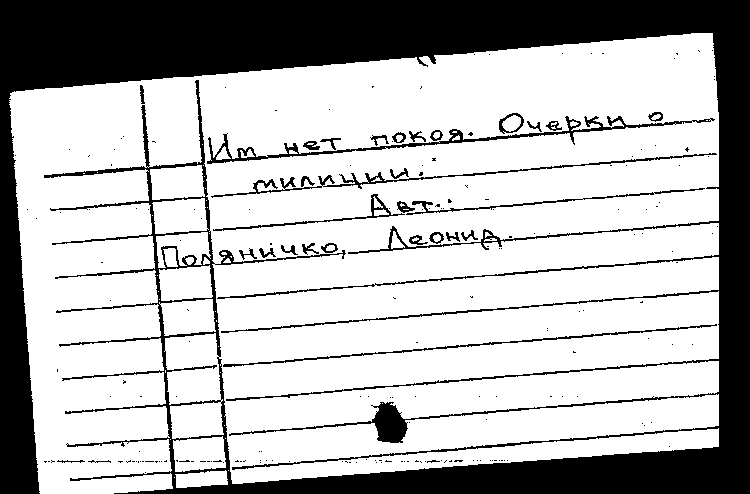 Им нет покоя. Очерки о
милиции.
Авт.:
Поляничко, Леонид.